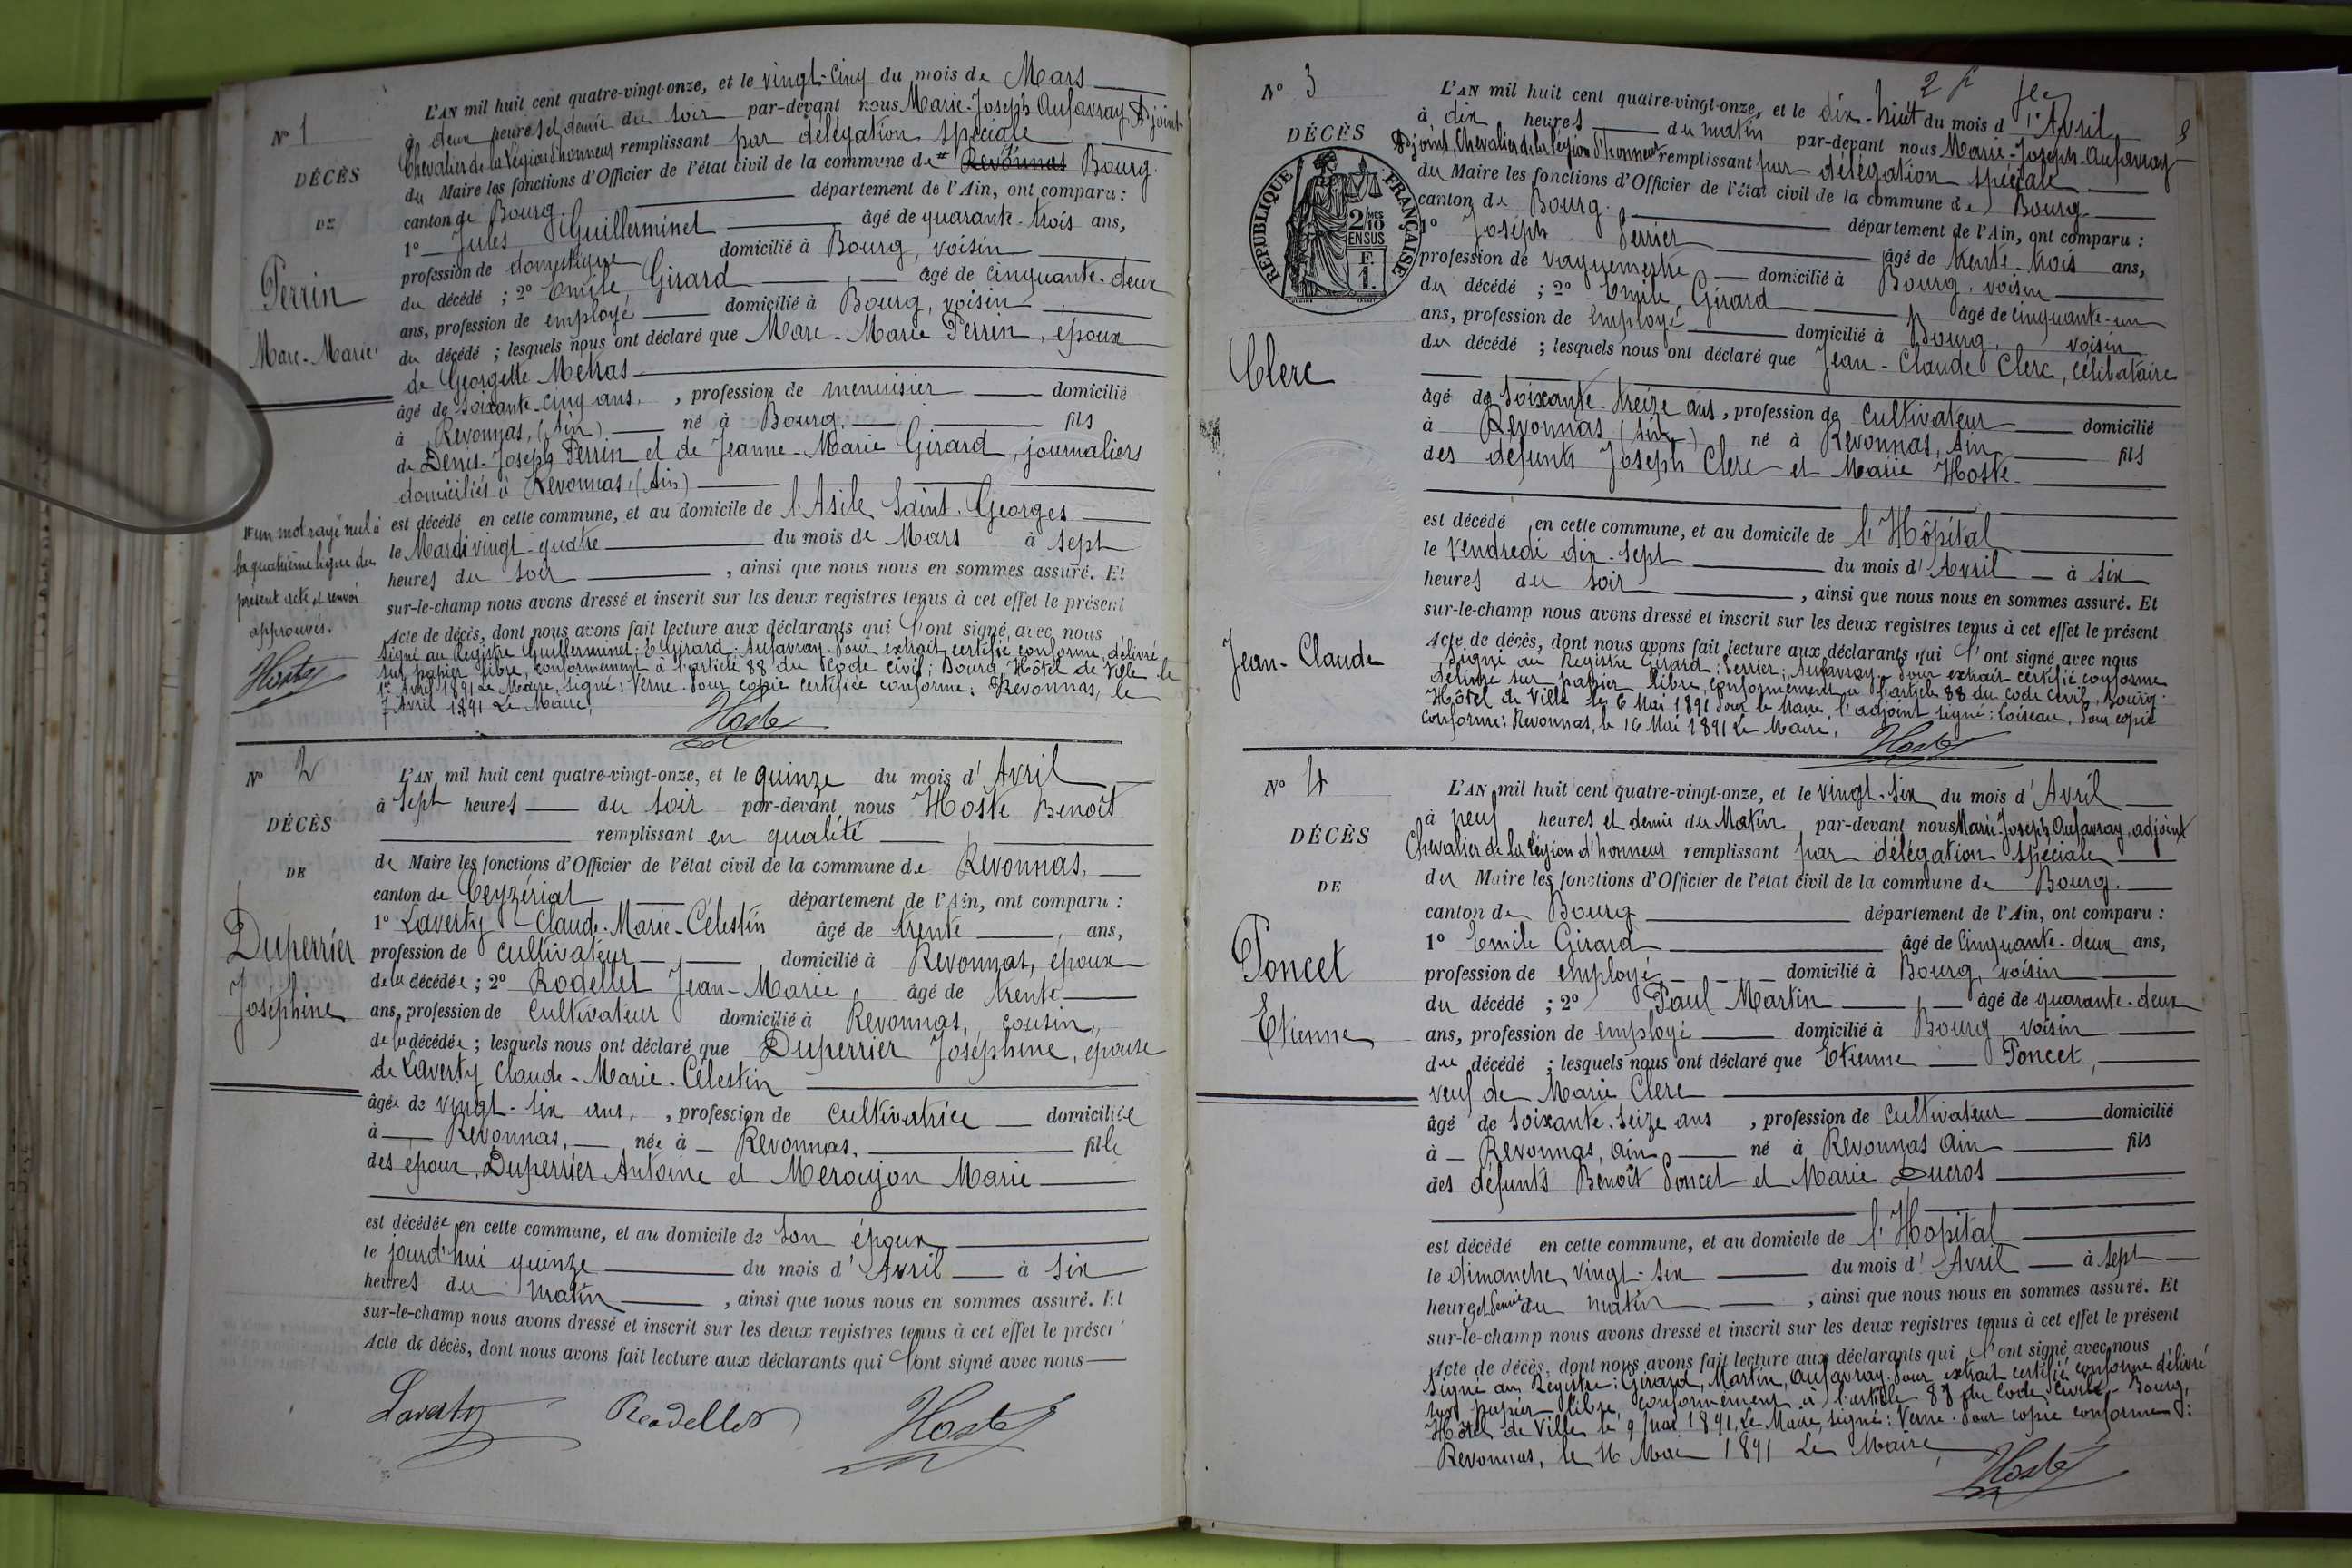 N° 1
DÉCÈS
DE
Perrin
Marc-Marie
L'AN mil huit cent quatre-vingt-onze, et le vingt-cinq du mois de Mars
à deux heures et demie du soir par-devant nous Marie-Joseph Aufavray Adjoint
Chevalier de la Légion d'honneur remplissant par délégation spéciale
du Maire les fonctions d'Officier de l'état civil de la commune de Revonnas Bourg.
canton de Bourg département de l'Ain, ont comparu :
1° Jules Guillerminet âgé de quarante-trois ans,
profession de domestique domicilié à Bourg, voisin
du décédé ; 2° Emile Girard âgé de cinquante-deux
ans, profession de employé domicilié à Bourg, voisin
du décédé ; lesquels nous ont déclaré que Marc-Marie Perrin, époux
de Georgette Metras
âgé de soixante-cinq ans, profession de menuisier domicilié
à Revonnas, (Ain) né à Bourg fils
de Denis-Joseph Perrin et de Jeanne-Marie Girard, journaliers
domiciliés à Revonnas, (Ain)
est décédé en cette commune, et au domicile de l'Asile Saint-Georges
le Mardi vingt-quatre du mois de Mars à sept
heures du soir, ainsi que nous nous en sommes assuré. Et
sur-le-champ nous avons dressé et inscrit sur les deux registres tenus à cet effet le présent
Acte de décès, dont nous avons fait lecture aux déclarants qui l'ont signé avec nous
Signé au Registre Guillerminet; E. Girard; Aufavray. Pour extrait certifié conforme, délivré
sur papier libre, conformément à l'article 88 du Code civil; Bourg Hôtel de Ville le
1er Avril 1891 Le Maire, signé: Verne. Pour copie certifiée conforme: Revonnas, le
7 Avril 1891 Le Maire,
Hoste
un mot rayé nul à
la quatrième ligne du
présent acte et renvoi
approuvés.
Hoste
N° 2
DÉCÈS
DE
Duperrier
Joséphine
L'AN mil huit cent quatre-vingt-onze, et le quinze du mois d'Avril
à sept heures du soir par-devant nous Hoste Benoît
remplissant en qualité
de Maire les fonctions d'Officier de l'état civil de la commune de Revonnas,
canton de Ceyzériat département de l'Ain, ont comparu :
1° Laverty Claude-Marie-Célestin âgé de trente ans,
profession de cultivateur domicilié à Revonnas, époux
de la décédée ; 2° Rodellet Jean-Marie âgé de trente
ans, profession de cultivateur domicilié à Revonnas, cousin,
de la décédée ; lesquels nous ont déclaré que Duperrier Joséphine, épouse
de Laverty Claude-Marie-Célestin
âgée de vingt-six ans, profession de cultivatrice domiciliée
à Revonnas, née à Revonnas, fille
des époux Duperrier Antoine et Marie
est décédée en cette commune, et au domicile de son époux
le jourd'hui quinze du mois d'Avril à six
heures du matin, ainsi que nous nous en sommes assuré. Et
sur-le-champ nous avons dressé et inscrit sur les deux registres tenus à cet effet le présent
Acte de décès, dont nous avons fait lecture aux déclarants qui l'ont signé avec nous
Laverty Rodellet Hoste
N° 3
DÉCÈS
RÉPUBLIQUE FRANÇAISE
2/10 MES
EN SUS
F.
1.
Clerc
Jean-Claude
L'AN mil huit cent quatre-vingt-onze, et le dix-huit du mois d'Avril
à dix heures du matin par-devant nous Marie-Joseph-Aufavray
Adjoint, Chevalier de la Légion d'honneur remplissant par délégation spéciale
du Maire les fonctions d'Officier de l'état civil de la commune de Bourg
canton de Bourg département de l'Ain, ont comparu :
1° Joseph Perrier âgé de trente-trois ans,
profession de vaguemestre domicilié à Bourg, voisin
du décédé ; 2° Emile Girard âgé de cinquante-un
ans, profession de employé domicilié à Bourg, voisin
du décédé ; lesquels nous ont déclaré que Jean-Claude Clerc, célibataire
âgé de soixante-treize ans, profession de cultivateur domicilié
à Revonnas (Ain) né à Revonnas, Ain fils
des défunts Joseph Clerc et Marie Hoste
est décédé en cette commune, et au domicile de l'Hôpital
le Vendredi dix-sept du mois d'Avril à six
heures du soir, ainsi que nous nous en sommes assuré. Et
sur-le-champ nous avons dressé et inscrit sur les deux registres tenus à cet effet le présent
Acte de décès, dont nous avons fait lecture aux déclarants qui l'ont signé avec nous
Signé au Registre Girard; Perrier; Aufavray. Pour extrait certifié conforme
délivré sur papier libre, conformément à l'article 88 du Code Civil, Bourg
Hôtel de Ville le 6 Mai 1891 Pour le Maire, l'adjoint signé: Loiseau, Pour copie
conforme: Revonnas, le 16 Mai 1891 Le Maire,
Hoste
N° 4
DÉCÈS
DE
Poncet
Etienne
L'AN mil huit cent quatre-vingt-onze, et le vingt-six du mois d'Avril
à neuf heures et demie du Matin par-devant nous Marie-Joseph Aufavray, adjoint
Chevalier de la Légion d'honneur remplissant par délégation spéciale
du Maire les fonctions d'Officier de l'état civil de la commune de Bourg.
canton de Bourg département de l'Ain, ont comparu :
1° Emile Girard âgé de cinquante-deux ans,
profession de employé domicilié à Bourg, voisin
du décédé ; 2° Paul Martin âgé de quarante-deux
ans, profession de employé domicilié à Bourg voisin
du décédé ; lesquels nous ont déclaré que Etienne Poncet,
veuf de Marie Clerc
âgé de soixante-seize ans, profession de cultivateur domicilié
à Revonnas, Ain né à Revonnas Ain fils
des défunts Benoît Poncet et Marie Ducros
est décédé en cette commune, et au domicile de l'Hôpital
le dimanche vingt-six du mois d'Avril à sept
heures et demie du matin, ainsi que nous nous en sommes assuré. Et
sur-le-champ nous avons dressé et inscrit sur les deux registres tenus à cet effet le présent
Acte de décès, dont nous avons fait lecture aux déclarants qui l'ont signé avec nous
Signé au Registre: Girard, Martin, Aufavray. Pour extrait certifié conforme délivré
sur papier libre, conformément à l'article 88 du Code Civil - Bourg,
Hôtel de Ville le 9 Mai 1891, Le Maire, signé: Verne. Pour copie conforme:
Revonnas, le 16 Mai 1891 Le Maire
Hoste